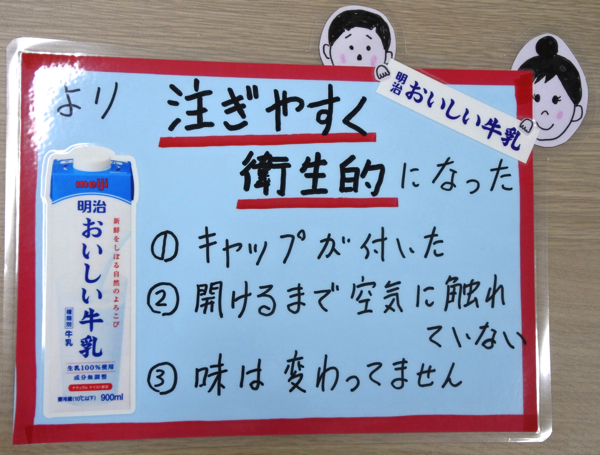 より 注ぎやすく
衛生的になった
① キャップが付いた
② 開けるまで空気に触れ
ていない
③ 味は変わってません
明治 おいしい牛乳
meiji
明治
おいしい牛乳
新鮮をしぼる自然のよろこび
種類別 牛乳
生乳100%使用
成分無調整
要冷蔵(10℃以下) 900ml